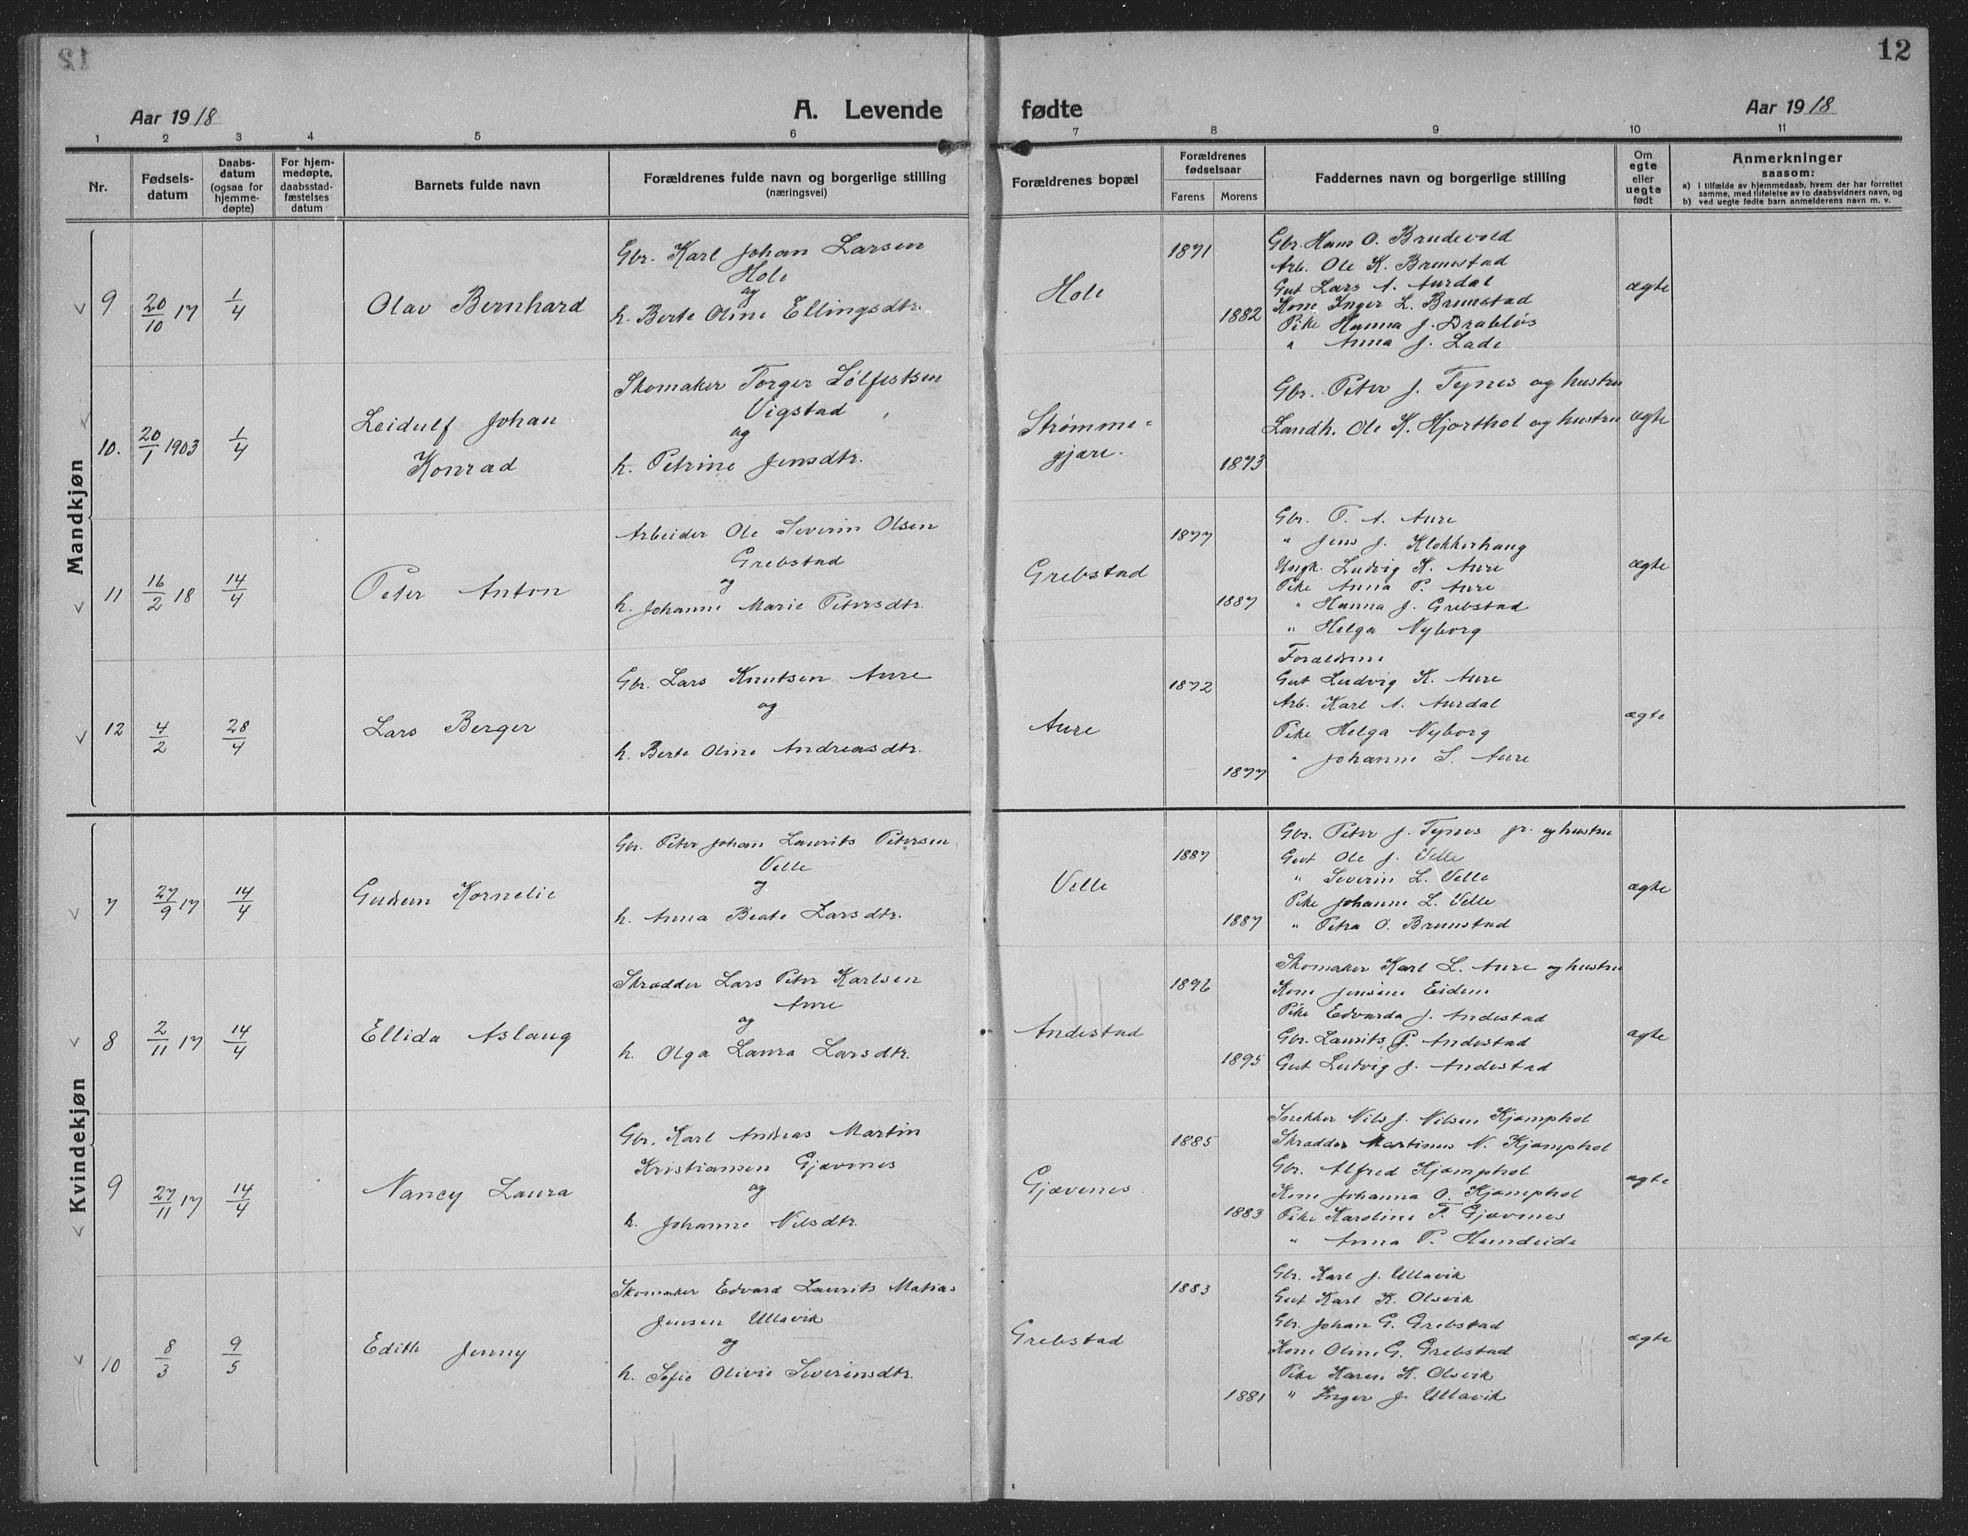 12
Aar 1918
A. Levende
fødte
Aar 1918
1 2 3 4 5 6 7 8 9 10 11
Nr.
Fødsels-
datum
Daabs-
datum
(ogsaa for
hjemme-
døpte)
For hjem-
medøpte,
daabsstad-
fæstelses
datum
Barnets fulde navn
Forældrenes fulde navn og borgerlige stilling
(næringsvei)
Forældrenes bopæl
Forældrenes
fødselsaar
Farens Morens
Faddernes navn og borgerlige stilling
Om
egte
eller
uegte
født
Anmerkninger
saasom:
a) I tilfælde av hjemmedaab, hvem der har forrettet
samme, med tilføielse av to daabsvidners navn, og
b) ved uegte fødte barn anmelderens navn m. v.
Mandkjøn
9 20/10 17 1/4
Olav Bernhard
Gbr. Karl Johan Larsen
Hole
og
h. Berte Oline Ellingsdtr.
Hole
1871
1882
Gbr. Hans O. Brudevold
Arb. Ole K. Brunstad
Gut Lars A. Aurdal
Kone Inger L. Brunstad
Pike Hanna J. Drabløs
" Anna J. Lade
ægte
10. 20/1 1903 1/4
Leidulf Johan
Konrad
Skomaker Torger Sølfestsen
Vigstad
og
h. Petrine Jensdtr.
Strømme-
gjære.
1873
Gbr. Peter J. Tynes og hustru
Landh. Ole K. Hjorthol og hustru
ægte
11 16/2 18 14/4
Peter Anton
Arbeider Ole Severin Olsen
Grebstad
og
h. Johanne Marie Petersdtr.
Grebstad
1877
1887
Gbr. P. A. Aure
" Jens J. Klokkerhaug
Ungk. Ludvig K. Aure
Pike Anna P. Aure
" Hanna J. Grebstad
" Helga Nyborg
ægte
12 4/2 28/4
Lars Berger
Gbr. Lars Knutsen Aure
og
h. Berte Oline Andreasdtr.
Aure
1872
1877
Forældrene
Gut Ludvig K. Aure
Arb. Karl A. Aurdal
Pike Helga Nyborg
" Johanne S. Aure
ægte
Kvindekjøn
7 27/9 17 14/4
Gudrun Kornelie
Gbr. Peter Johan Laurits Petersen
Velle
og
h. Anna Beate Larsdtr.
Velle
1887
1887
Gbr. Peter J. Tynes jr. og hustru
Gut Ole J. Velle
" Severin L. Velle
Pike Johanne L. Velle
" Petra O. Brunstad
ægte
8 2/11 17 14/4
Ellida Aslaug
Skrædder Lars Peter Karlsen
Aure
og
h. Olga Laura Larsdtr.
Andestad
1896
1895
Skomaker Karl L. Aure og hustru
Kone Jensine Eidem
Pike Edvarda J. Andestad
Gbr. Laurits P. Andestad
Gut Ludvig J. Andestad
ægte
9 27/11 17 14/4
Nancy Laura
Gbr. Karl Andreas Martin
Kristiansen Gjævenes
og
h. Johanne Nilsdtr.
Gjævenes
1885
1883
Snekker Nils J. Nilsen Kjæmphol
Skrædder Martinus N. Kjæmphol
Gbr. Alfred Kjæmphol
Kone Johanna O. Kjæmphol
Pike Karoline P. Gjævenes
" Anna P. Hundeide
ægte
10 8/3 9/5
Edith Jenny
Skomaker Edvard Laurits Matias
Jensen Ullavik
og
h. Sofie Olivie Severinsdtr.
Grebstad
1883
1881
Gbr. Karl J. Ullavik
Gut Karl K. Olsvik
Gbr. Johan G. Grebstad
Kone Oline G. Grebstad
Pike Karen K. Olsvik
" Inger J. Ullavik
ægte